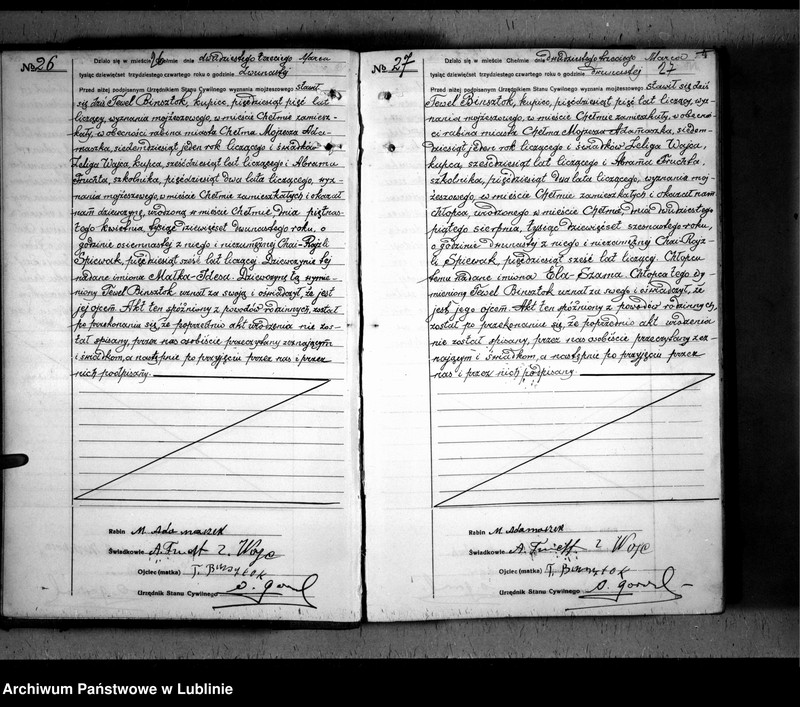 № 26
Działo się w mieście Chełmie dnia dwudziestego trzeciego Marca
tysiąc dziewięćset trzydziestego czwartego roku o godzinie dwunastej
Przed niżej podpisanym Urzędnikiem Stanu Cywilnego wyznania mojżeszowego stawił
się dziś Fewel Binsztok, kupiec, pięćdziesiąt pięć lat
liczący, wyznania mojżeszowego, w mieście Chełmie zamiesz-
kały, w obecności rabina miasta Chełma Mojżesza Ada-
maszka, siedemdziesiąt jeden rok liczącego i świadków
Zeliga Wajca, kupca, sześćdziesiąt lat liczącego i Abrama
Fruchta, szkolnika, pięćdziesiąt dwa lata liczącego, wyz-
nania mojżeszowego, w mieście Chełmie zamieszkałych i okazał
nam dziewczynę, urodzoną w mieście Chełmie dnia piętnas-
tego kwietnia, tysiąc dziewięćset dwunastego roku, o
godzinie osiemnastej z niego i niezamężnej Chai-Rojzli
Śpiewak, pięćdziesiąt sześć lat liczącej. Dziewczynie tej
nadano imiona Matka-Idesa. Dziewczynę tą wymie-
niony Fewel Binsztok uznał za swoją i oświadczył, że jest
jej ojcem. Akt ten spóźniony z powodów rodzinnych, został
po przekonaniu się, że poprzednio akt urodzenia nie zos-
tał spisany, przez nas osobiście przeczytany zeznającym
i świadkom, a następnie po przyjęciu przez nas i przez
nich podpisany.
Rabin M. Adamaszek
Świadkowie A. Frucht Z. Wajc
Ojciec (matka) F. Binsztok
Urzędnik Stanu Cywilnego
№ 27
Działo się w mieście Chełmie dnia dwudziestego trzeciego Marca
tysiąc dziewięćset trzydziestego czwartego roku o godzinie dwunastej 27
Przed niżej podpisanym Urzędnikiem Stanu Cywilnego wyznania mojżeszowego stawił się dziś
Fewel Binsztok, kupiec, pięćdziesiąt pięć lat liczący, wyz-
nania mojżeszowego, w mieście Chełmie zamieszkały, w obecnoś-
ci rabina miasta Chełma Mojżesza Adamaszka, siedem-
dziesiąt jeden rok liczącego i świadków Zeliga Wajca,
kupca, sześćdziesiąt lat liczącego i Abrama Fruchta,
szkolnika, pięćdziesiąt dwa lata liczącego, wyznania moj-
żeszowego, w mieście Chełmie zamieszkałych i okazał nam
chłopca, urodzonego w mieście Chełmie, dnia dwudziestego
piątego sierpnia, tysiąc dziewięćset szesnastego roku,
o godzinie drugiej z niego i niezamężnej Chai-Rojz-
li Śpiewak, pięćdziesiąt sześć lat liczącej. Chłopcu
temu nadano imiona Ela-Szama. Chłopca tego wy-
mieniony Fewel Binsztok uznał za swego i oświadczył, że
jest jego ojcem. Akt ten spóźniony z powodów rodzinnych,
został po przekonaniu się, że poprzednio akt urodzenia
nie został spisany, przez nas osobiście przeczytany zez-
nającym i świadkom, a następnie po przyjęciu przez
nas i przez nich podpisany.
Rabin M. Adamaszek
Świadkowie A. Frucht Z. Wajc
Ojciec (matka) F. Binsztok
Urzędnik Stanu Cywilnego
Archiwum Państwowe w Lublinie